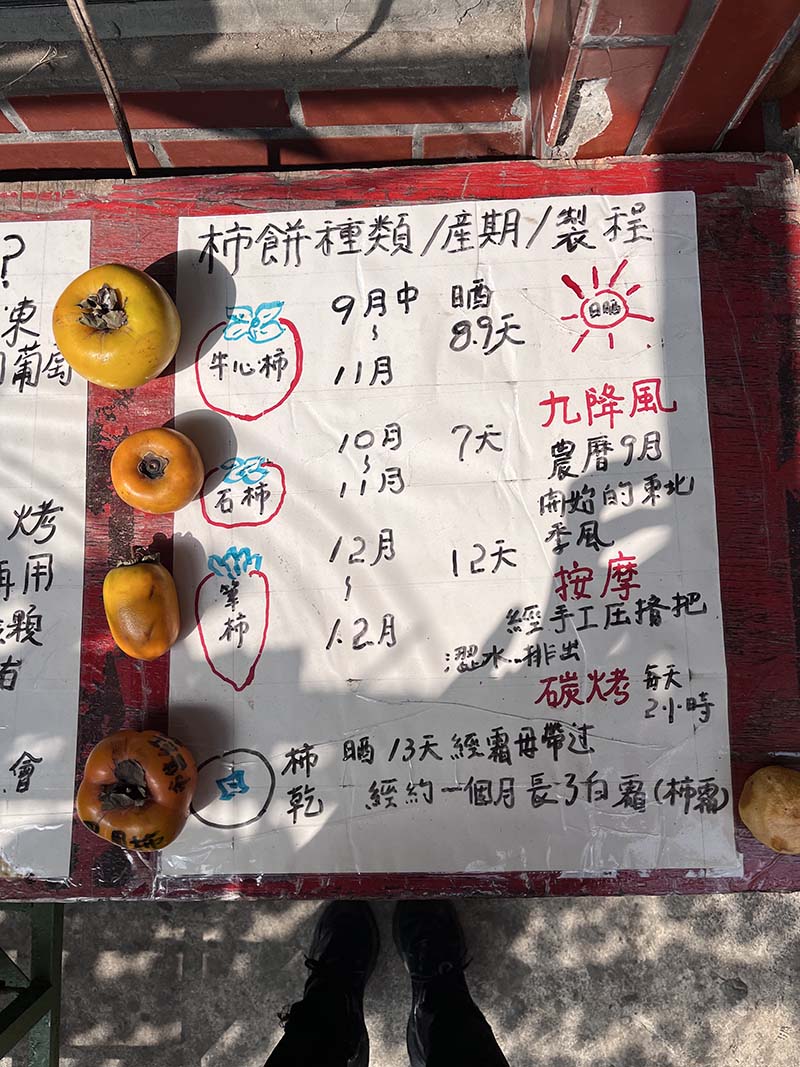 ?
凍
葡萄
烤
再用
顆
會
柿餅種類/產期/製程
牛心柿
9月中
~
11月
晒
8.9天
日晒
石柿
10月
~
11月
7天
九降風
農曆9月
開始的東北
季風
筆柿
12月
~
1.2月
12天
按摩
經手工压擠把
澀水排出
碳烤
每天
2小時
柿乾
晒13天經霜母帶过
經約一個月長了白霜(柿霜)